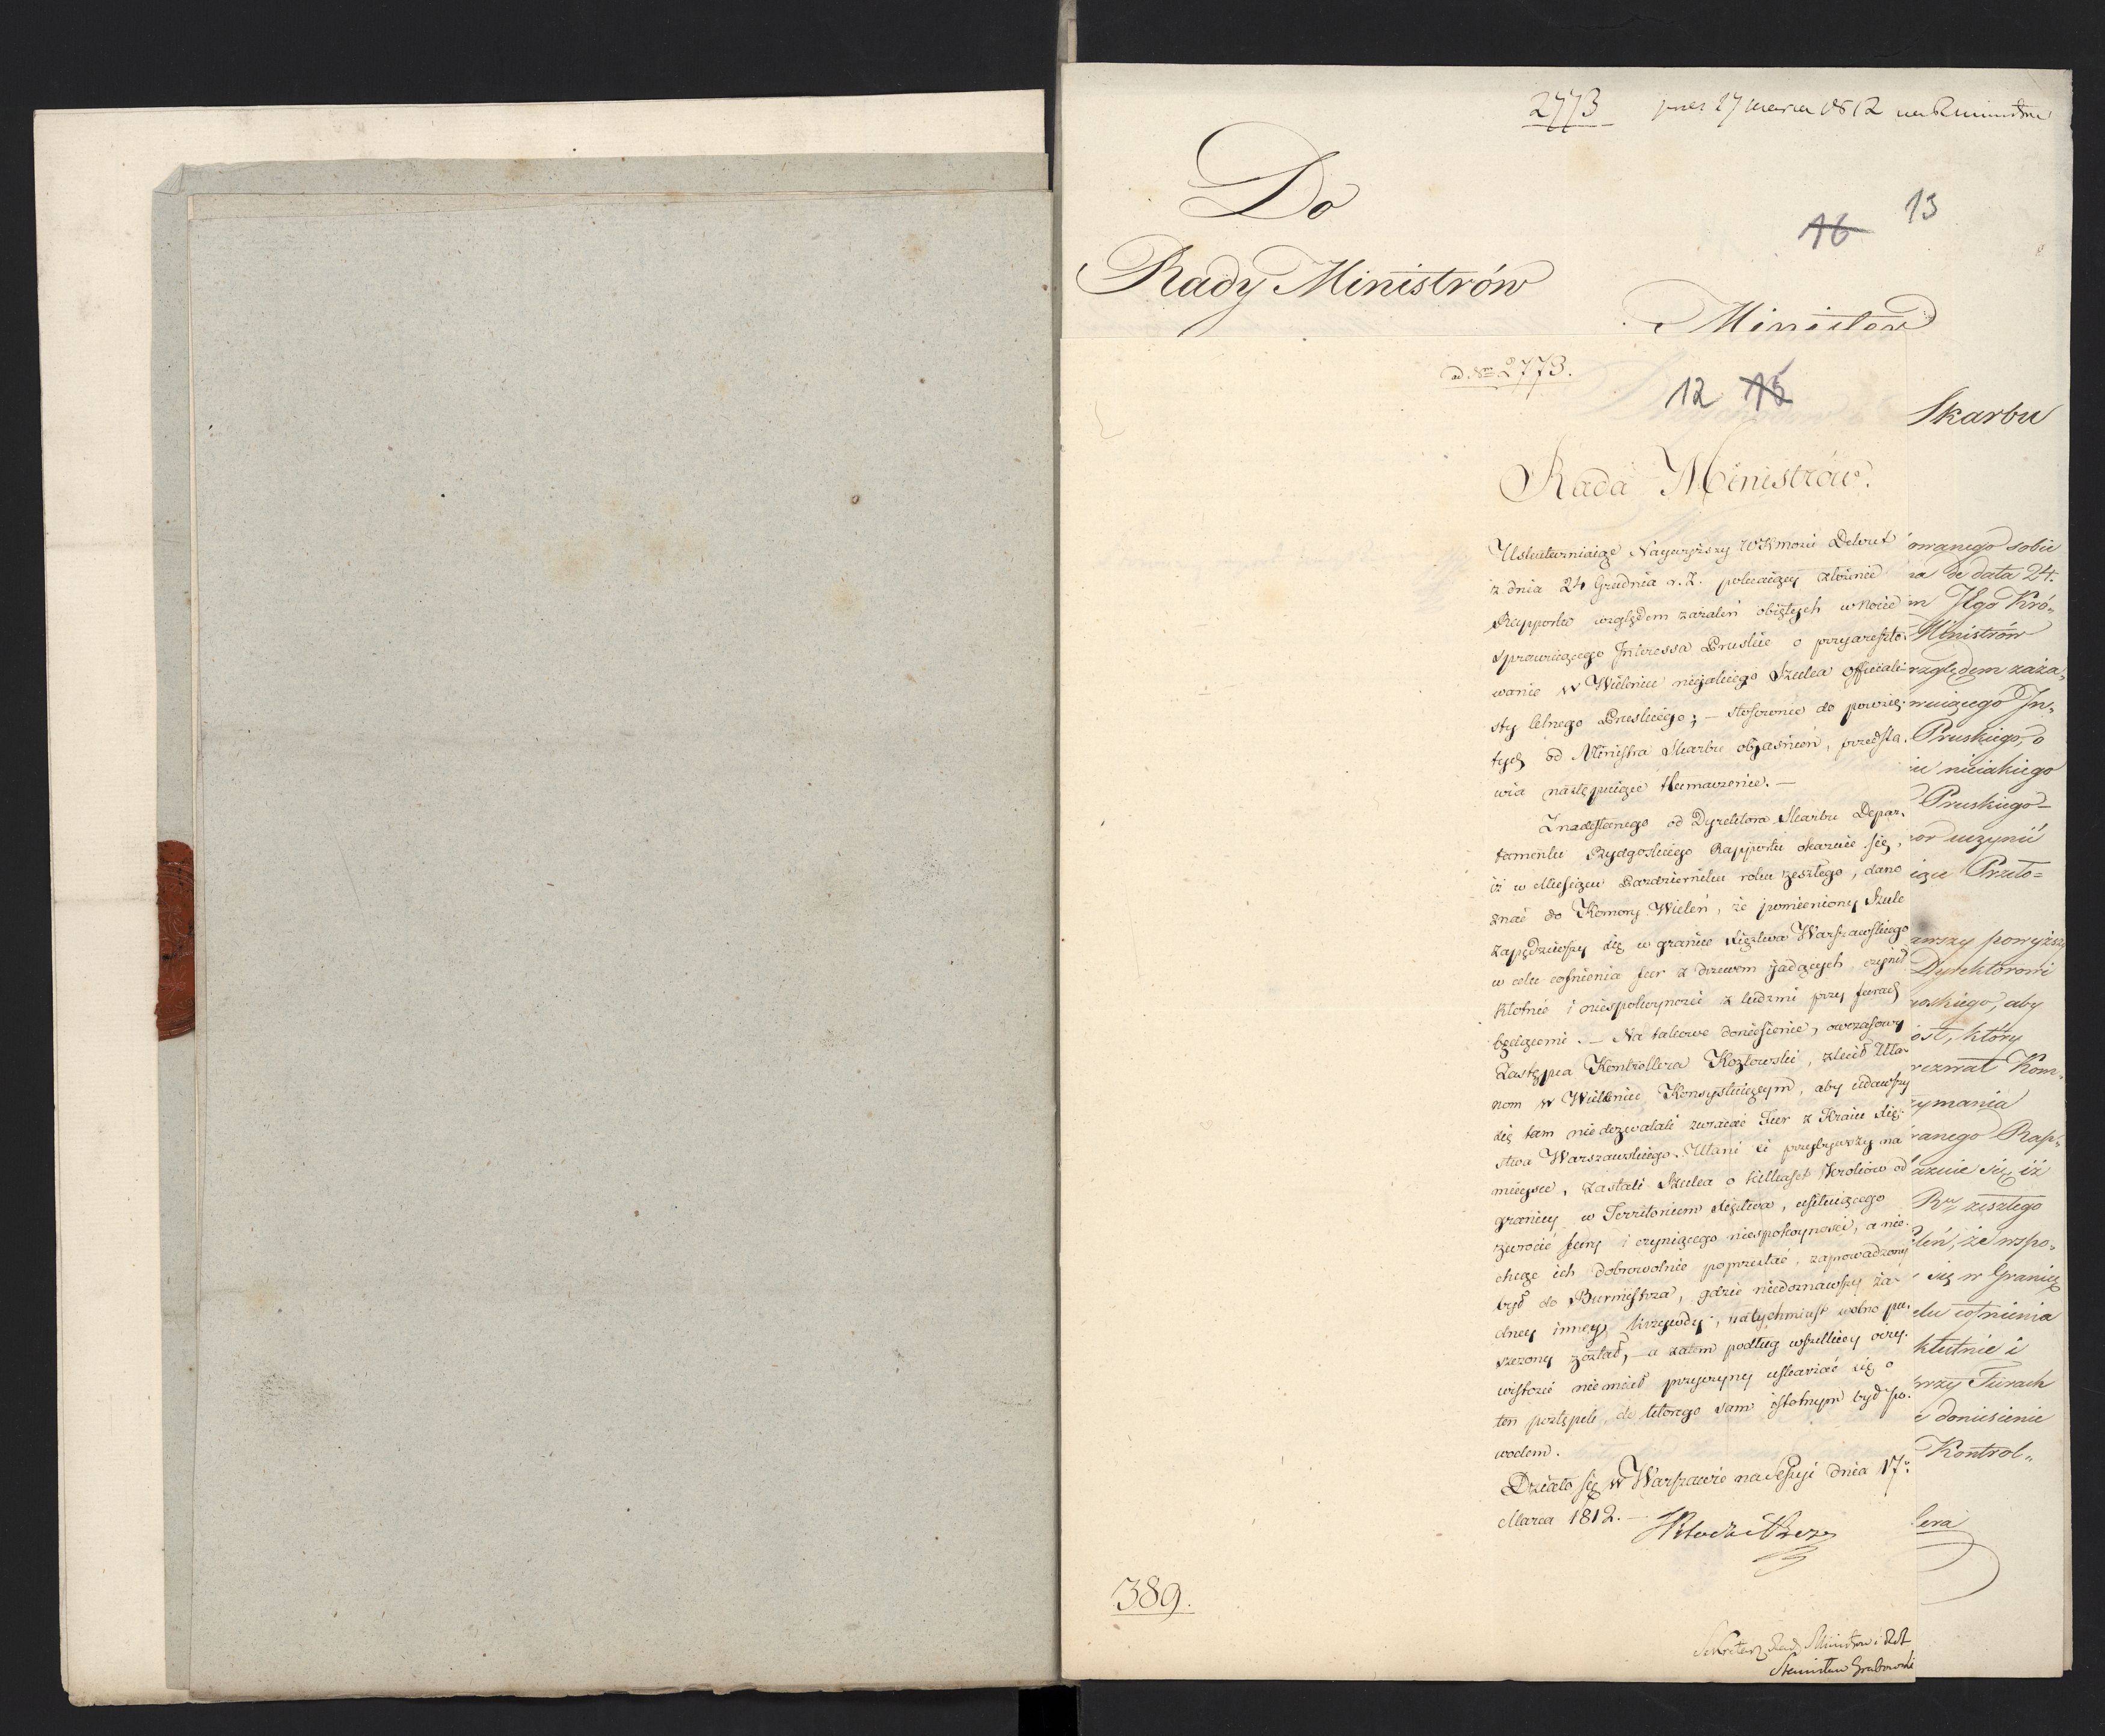 2773 17 marca 1812
Do
16 13
Rady Ministrów
Minister
ad Nrm 2773.
12 15
Skarbu
Rada Ministrów.
Uskuteczniaiąc Naywyższy WKMości Dekret
z dnia 24 Grudnia r. z. polecaiący złożenie
Rapportu względem zażaleń obiętych w Nocie
sprawuiącego Interessa Pruskie o przyareszto-
wanie w Wieleniu nieiakiego Szulca Officiali-
sty celnego Pruskiego; – stosownie do powzię-
tych od Ministra Skarbu obiaśnień, przedsta-
wia następuiące tłumaczenie. –
Z nadesłanego od Dyrektora Skarbu Depar-
tamentu Bydgoskiego Rapportu okazuie się,
iż w Miesiącu Październiku roku zeszłego, dano
znać do Komory Wieleń, że pomieniony Szulc
zapędziwszy się w granice Xięztwa Warszawskiego
w celu cofnienia fur z drzewem iadących, czynił
kłótnie i niespokoyności z ludźmi przy furach
będącemi. – Na takowe doniesienie, owczasowy
Zastępca Kontrollera Kozłowski, zlecił Uła-
nom w Wieleniu Konsystuiącym, aby udawszy
się tam niedozwalali zwracać Fur z Kraiu Xię-
stwa Warszawskiego. Ułani ci przybywszy na
mieysce, zastali Szulca o kilkaset kroków od
granicy w Territorium Xięztwa, usiłuiącego
zwrócić fury i czyniącego niespokoyności, a nie-
chcąc ich dobrowolnie poprzestać, zaprowadzony
był do Burmistrza, gdzie niedoznawszy ża-
dney inney krzywdy, natychmiast wolno pu-
szczony został, – a zatem podług wszelkiey oczy-
wistości niemiał przyczyny uskarżać się o
ten postępek, do którego sam istotnym był po-
wodem.
Działo się w Warszawie na Sessyi dnia 17.
Marca 1812. –
389.
Sekretarz Rady Ministrów i Stt
Stanisław Grabowski
owanego sobie
na de data 24.
m JKgo Kró-
Ministrów
względem zaża-
wuiącego In-
Pruskiego, o
iu nieiakiego
Pruskiego –
or uczynić
iąc Przeło-
awszy powyższy
Dyrektorowi
oskiego, aby
ost, który
wezwał Kom-
zymania
ranego Rap-
azuie się iż
Ru zeszłego
leń, że wspo-
się w Granicę
elu cofnienia
kłutnie i
przy Furach
e doniesienie
Kontrol-
lera